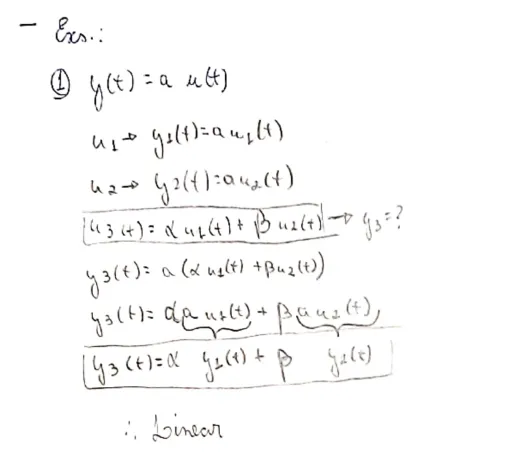 - Exs.:
① y(t) = a u(t)
u1 → y1(t) = a u1(t)
u2 → y2(t) = a u2(t)
u3(t) = α u1(t) + β u2(t) → y3 = ?
y3(t) = a (α u1(t) + β u2(t))
y3(t) = α a u1(t) + β a u2(t)
y3(t) = α y1(t) + β y2(t)
∴ Linear